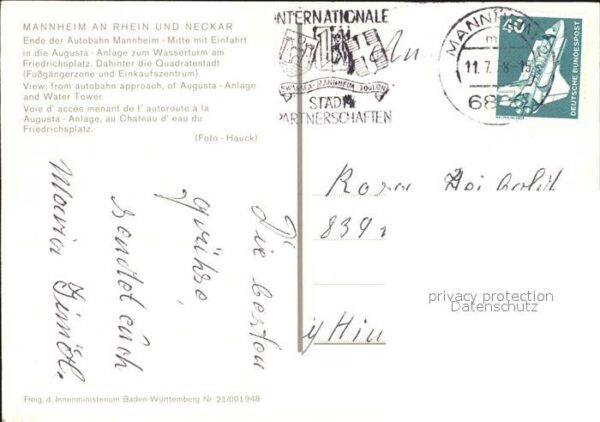 MANNHEIM AN RHEIN UND NECKAR
Ende der Autobahn Mannheim - Mitte mit Einfahrt
in die Augusta - Anlage zum Wasserturm am
Friedrichsplatz. Dahinter die Quadratestadt
(Fußgängerzone und Einkaufszentrum).
View, from autobahn approach, of Augusta - Anlage
and Water Tower
Voie d' accès menant de l' autoroute à la
Augusta - Anlage, au Chateau d' eau du
Friedrichsplatz.
(Foto - Hauck)
INTERNATIONALE
SWANSEA - MANNHEIM - TOULON
STÄDTE
PARTNERSCHAFTEN
MANNHEIM
11.7.
40
DEUTSCHE BUNDESPOST
An
Rosa
839
Die besten
Grüße,
sendet euch
Maria
privacy protection
Datenschutz
Freig. d. Innenministerium Baden-Württemberg Nr 21/001948